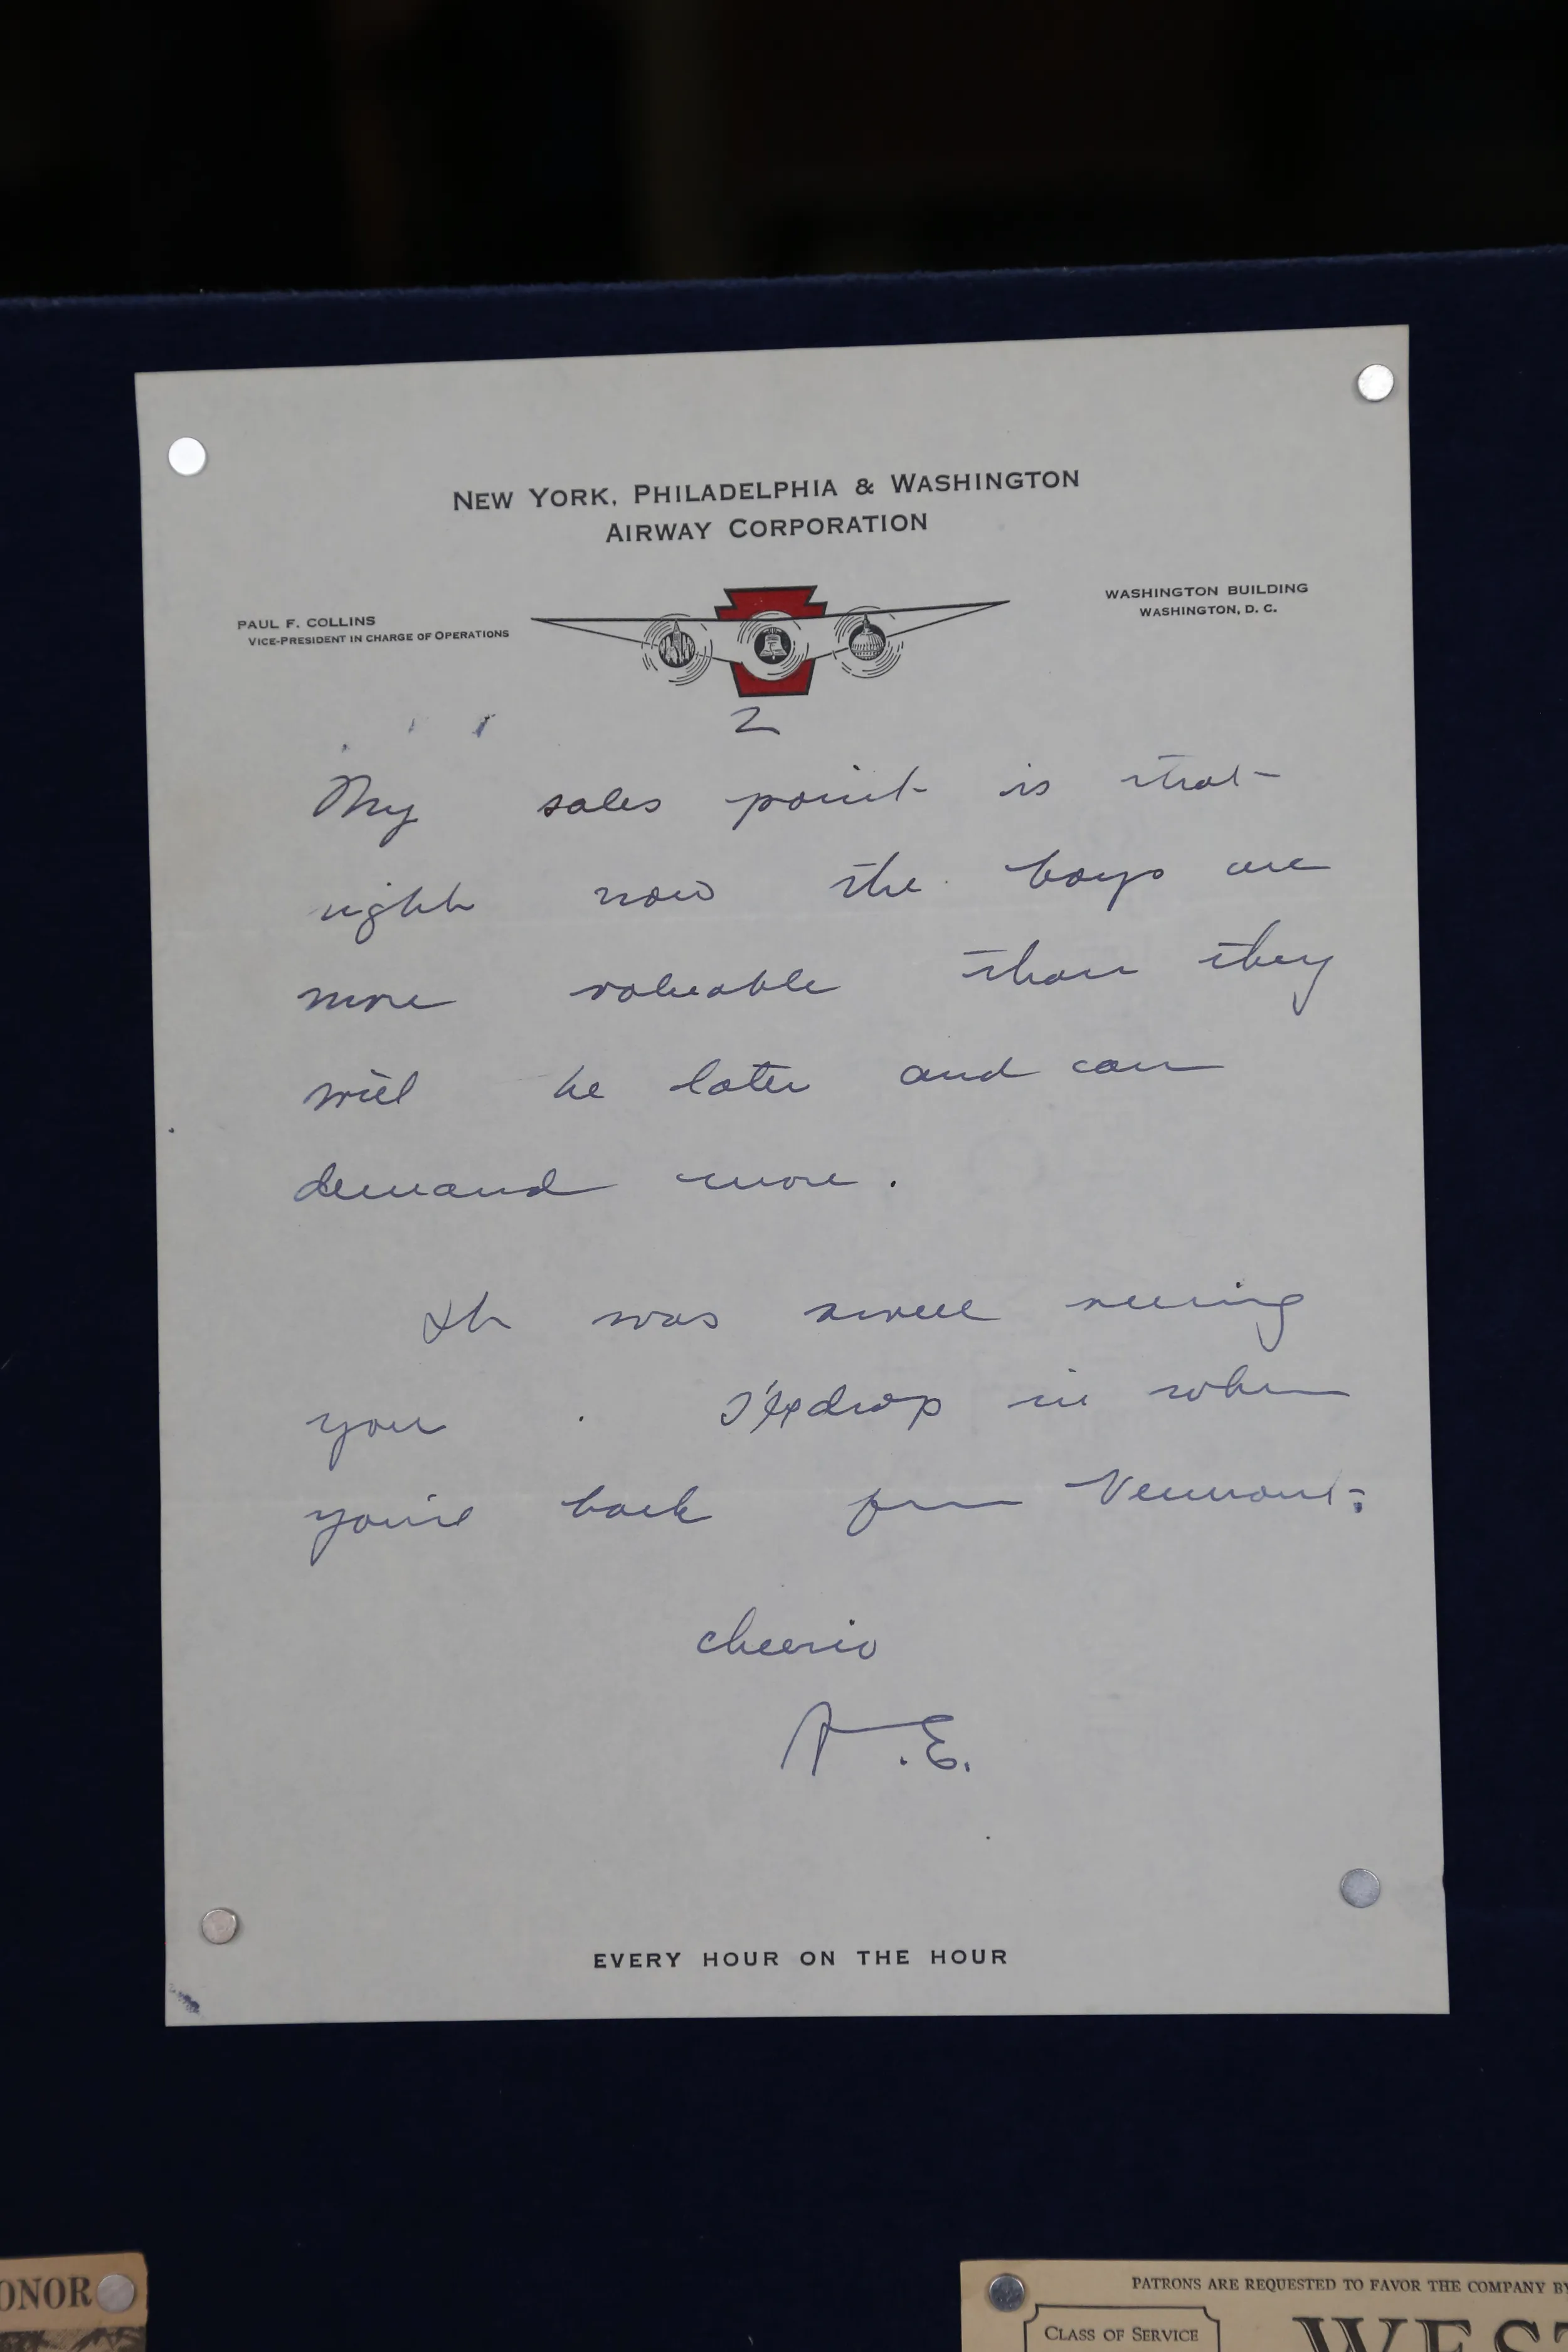 NEW YORK, PHILADELPHIA & WASHINGTON
AIRWAY CORPORATION
PAUL F. COLLINS
VICE-PRESIDENT IN CHARGE OF OPERATIONS
WASHINGTON BUILDING
WASHINGTON, D. C.
2
My sales point is that
right now the boys are
more valuable than they
will be later and can
demand more.
It was swell seeing
you. I'll drop in when
you're back from Vermont.
cheerio
A.E.
EVERY HOUR ON THE HOUR
ONOR
PATRONS ARE REQUESTED TO FAVOR THE COMPANY BY
CLASS OF SERVICE
WEST